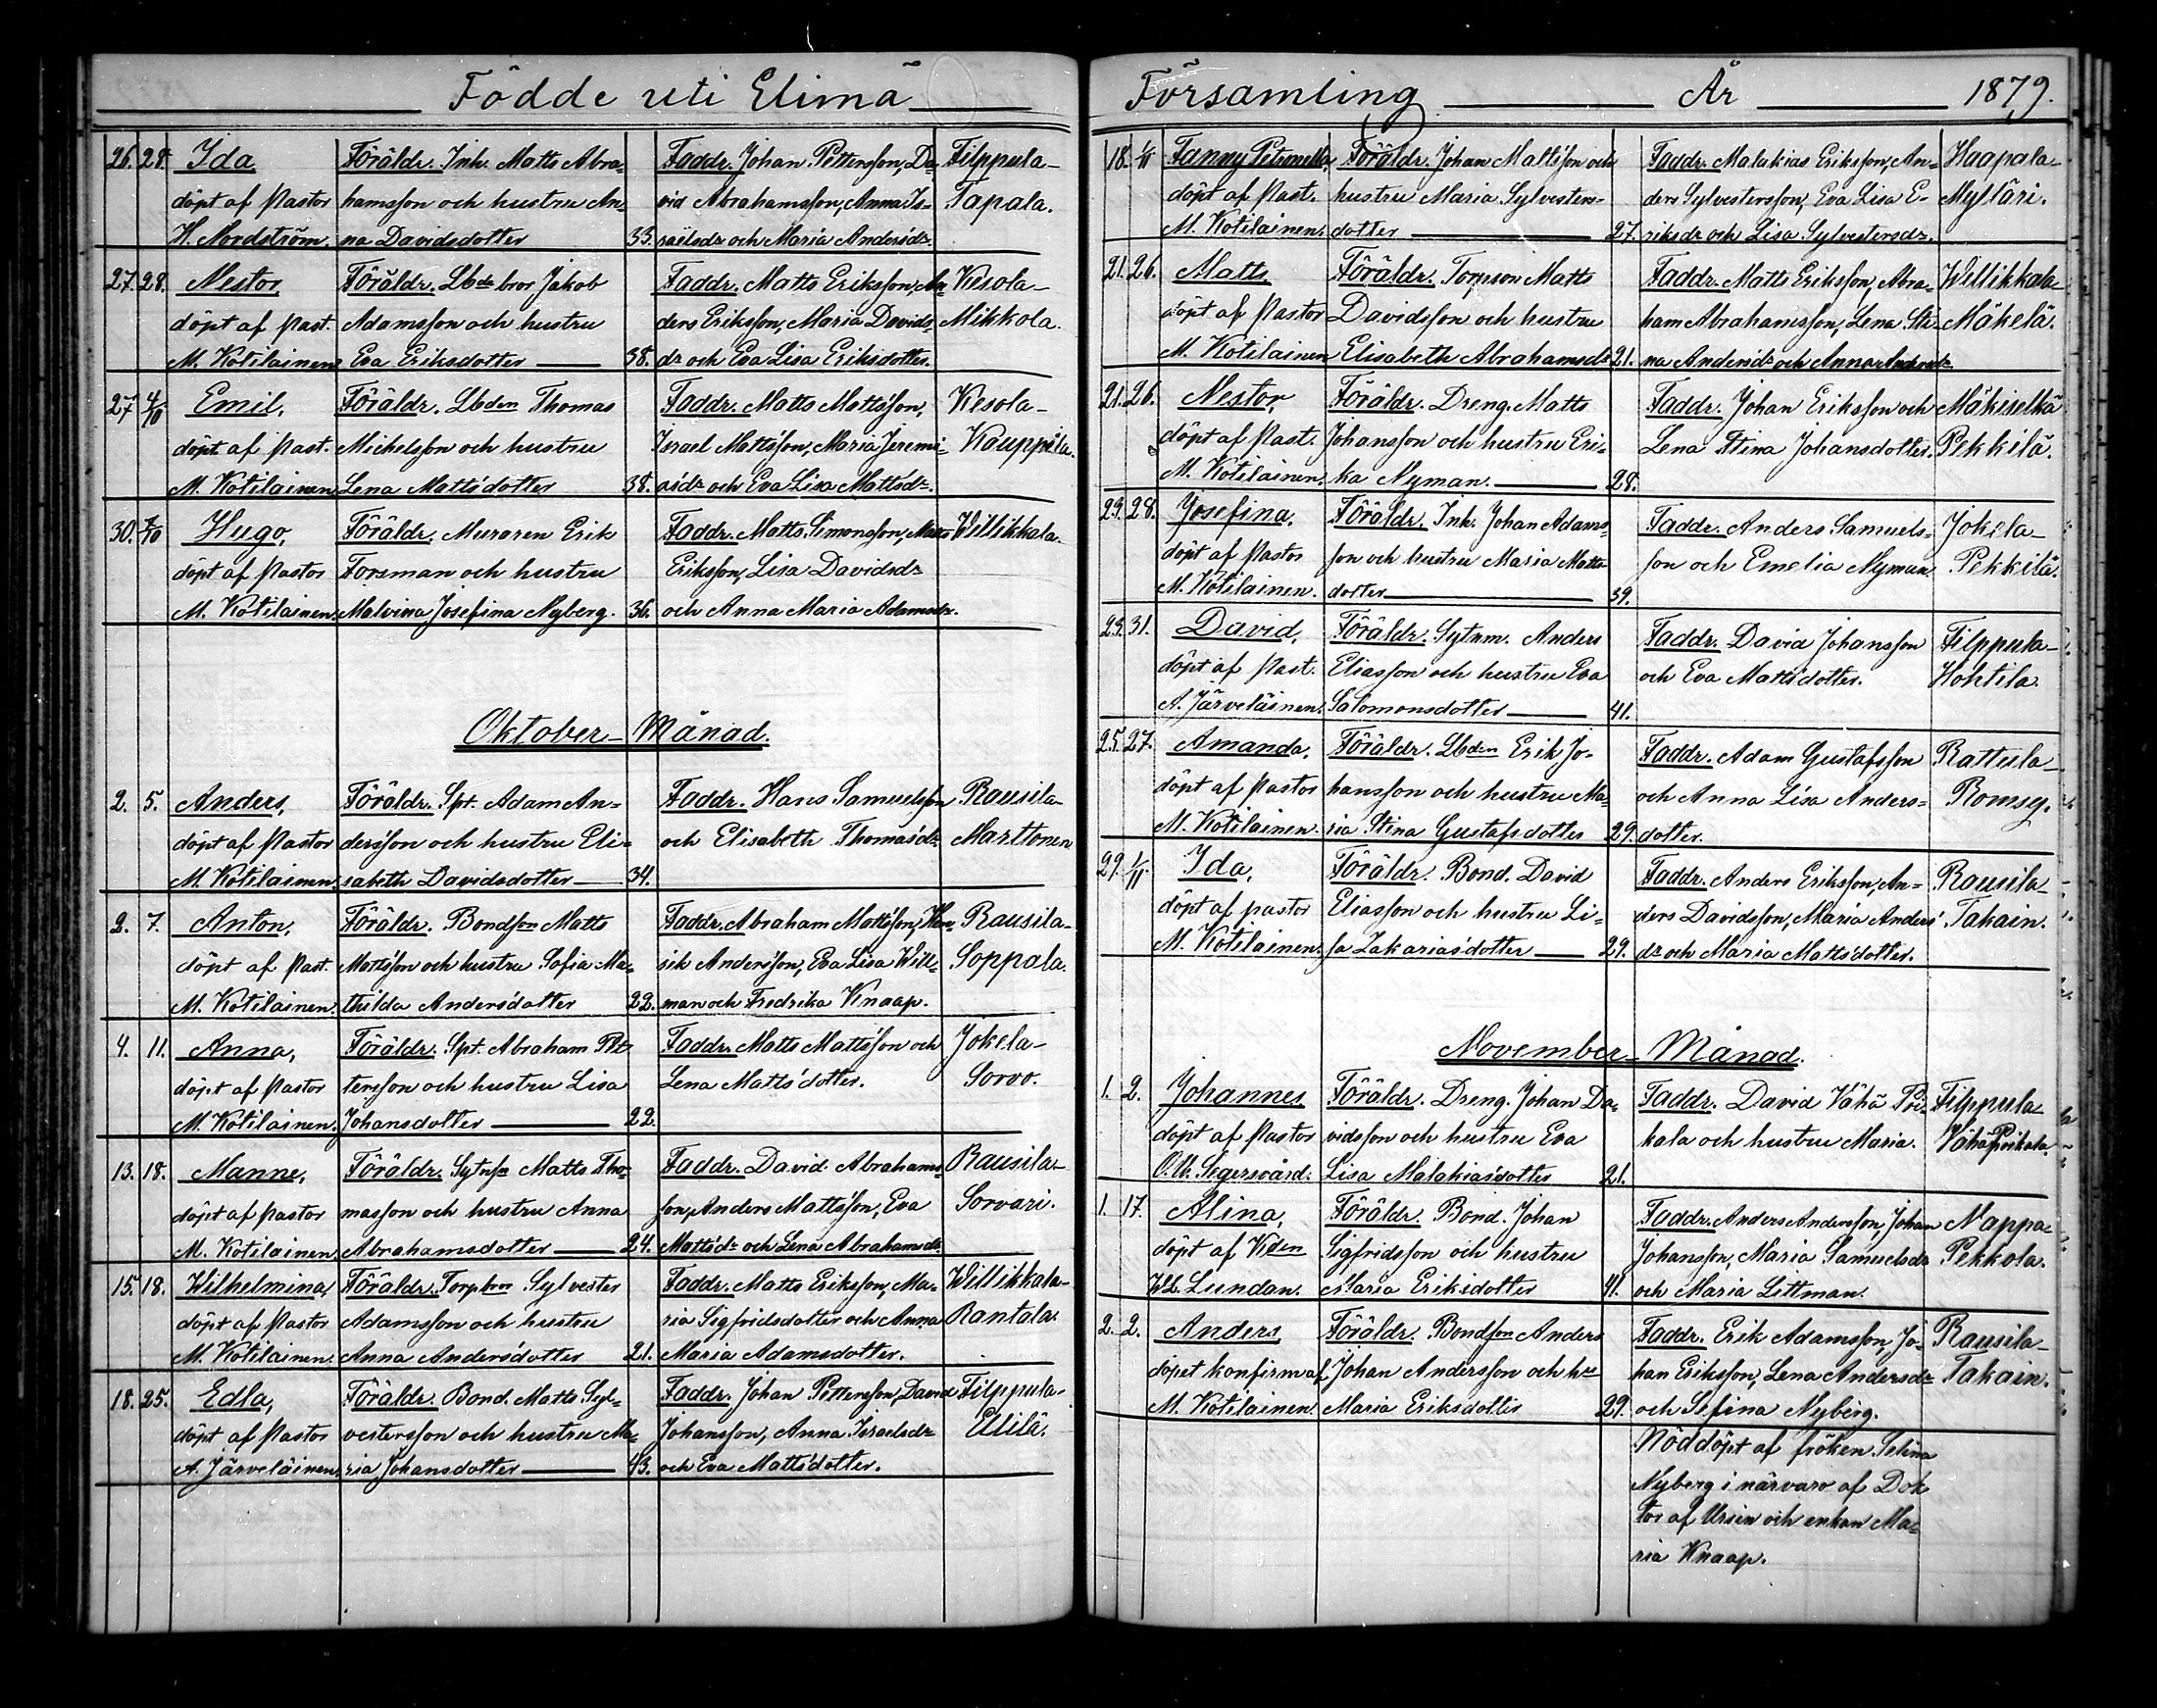 Födde uti Elimä
26. 28. Ida Föräldr. Inh. Matts Abra- Faddr. Johan Pettersson, Da- Filppula-
döpt af Pastor hamsson och hustru An- vid Abrahamsson, Anna Is- Tapala.
H. Nordström. na Davidsdotter 33. raelsdr och Maria Andersdr.
27. 28. Nestor, Föräldr. Lbde bror Jakob Faddr. Matts Eriksson, An- Kesola-
döpt af Past. Adamsson och hustru ders Eriksson, Maria Davids- Mikkola.
M. Kotilainen Eva Eriksdotter 38. dr och Eva Lisa Eriksdotter.
27 4/10 Emil, Föräldr. Lbden Thomas Faddr. Matts Mattsson, Kesola-
döpt af Past. Michelsson och hustru Israel Mattsson, Maria Jeremi- Kauppila.
M. Kotilainen Lena Mattsdotter 38. asdr och Eva Lisa Mattsdr.
30. /10 Hugo, Föräldr. Muraren Erik Faddr. Matts Simonsson, Matts Willikkala.
döpt af Pastor Forsman och hustru Eriksson, Lisa Davidsdr
M. Kotilainen. Malvina Josefina Nyberg. 36. och Anna Maria Adamsdr.
Oktober Månad.
2. 5. Anders, Föräldr. Spt. Adam An- Faddr. Hans Samuelsson Rausila-
döpt af Pastor dersson och hustru Eli- och Elisabeth Thomasdr Marttonen
M. Kotilainen. sabeth Davidsdotter 34.
2. 7. Anton, Föräldr. Bondson Matts Faddr. Abraham Mattsson, Hen- Rausila-
döpt af Past. Mattsson och hustru Sofia Ma- rik Andersson, Eva Lisa Will- Soppala.
M. Kotilainen. thilda Andersdotter 22. man och Fredrika Knaap.
4. 11. Anna, Föräldr. Spt. Abraham Pet- Faddr. Matts Mattsson och Jokela-
döpt af Pastor tersson och hustru Lisa Lena Mattsdotter. Sorvo.
M. Kotilainen. Johansdotter 22.
13. 18. Manne, Föräldr. Sytnsn Matts Tho- Faddr. David Abrahams- Rausila-
döpt af Pastor masson och hustru Anna son, Anders Mattsson, Eva Sorvari.
M. Kotilainen. Abrahamsdotter 24. Mattsdr och Lena Abrahamsdr.
15. 18. Wilhelmina, Föräldr. Torpbror Sylvester Faddr. Matts Eriksson, Ma- Willikkala-
döpt af Pastor Adamsson och hustru ria Sigfridsdotter och Anna Rantala.
M. Kotilainen. Anna Andersdotter 21. Maria Adamsdotter.
18. 25. Edla, Föräldr. Bond. Matts Syl- Faddr. Johan Pettersson, David Filppula-
döpt af Pastor vestersson och hustru Ma- Johansson, Anna Israelsdr Elilä.
A. Järveläinen. ria Johansdotter 43. och Eva Mattsdotter.
Församling År 1879.
18. 1/11 Fanny Petronella, Föräldr. Johan Mattsson och Faddr. Malakias Eriksson, An- Haapala-
döpt af Past. hustru Maria Sylvesters- ders Sylvestersson, Eva Lisa E- Mylläri.
M. Kotilainen. dotter 27. riksdr och Lisa Sylvestersdr.
21. 26. Matts, Föräldr. Torpson Matts Faddr. Matts Eriksson, Abra- Willikkala-
döpt af Pastor Davidsson och hustru ham Abrahamsson, Lena Sti- Mäkelä.
M. Kotilainen Elisabeth Abrahamsdr 21. na Andersdr och Anna Andersdr.
21. 26. Nestor, Föräldr. Dreng. Matts Faddr. Johan Eriksson och Mäkiselkä
döpt af Past. Johansson och hustru Eri- Lena Stina Johansdotter. Pekkilä.
M. Kotilainen. ka Nyman. 28.
23. 28. Josefina, Föräldr. Inh. Johan Adams- Faddr. Anders Samuels- Jokela-
döpt af Pastor son och hustru Maria Matts- son och Emelia Nyman. Pekkilä.
M. Kotilainen. dotter 39.
23. 31. David, Föräldr. Sytnm. Anders Faddr. David Johansson Filppula-
döpt af Past. Eliasson och hustru Eva och Eva Mattsdotter. Hohtila.
A. Järveläinen. Salomonsdotter 41.
25. 27. Amanda, Föräldr. Lbden Erik Jo- Faddr. Adam Gustafsson Rattula-
döpt af Pastor hansson och hustru Ma- och Anna Lisa Anders- Romsy.
M. Kotilainen. ria Stina Gustafsdotter 29. dotter.
29. 1/11 Ida, Föräldr. Bond. David Faddr. Anders Eriksson, An- Rausila-
döpt af pastor Eliasson och hustru Li- ders Davidsson, Maria Anders- Takain.
M. Kotilainen. sa Zakariasdotter 29. dr och Maria Mattsdotter.
November Månad.
1. 2. Johannes Föräldr. Dreng. Johan Da- Faddr. David Vähä Pri- Filppula-
döpt af Pastor vidsson och hustru Eva kala och hustru Maria. Vähä Prikala.
O. W. Segersvärd. Lisa Malakiasdotter 21.
1. 17. Alina, Föräldr. Bond. Johan Faddr. Anders Andersson, Johan Nappa-
döpt af Kden Sigfridsson och hustru Johansson, Maria Samuelsdr Pekkola.
Lundan. Maria Eriksdotter 41. och Maria Littman.
2. 2. Anders Föräldr. Bondson Anders Faddr. Erik Adamsson, Jo- Rausila-
döpet konfirm af Johan Andersson och hu han Eriksson, Lena Andersdr Takain.
M. Kotilainen. Maria Eriksdotter 29. och Sefina Nyberg.
Nöddöpt af fröken Selina
Nyberg i närvaro af Dok
tor af Ursin och enkan Ma-
ria Knaap.